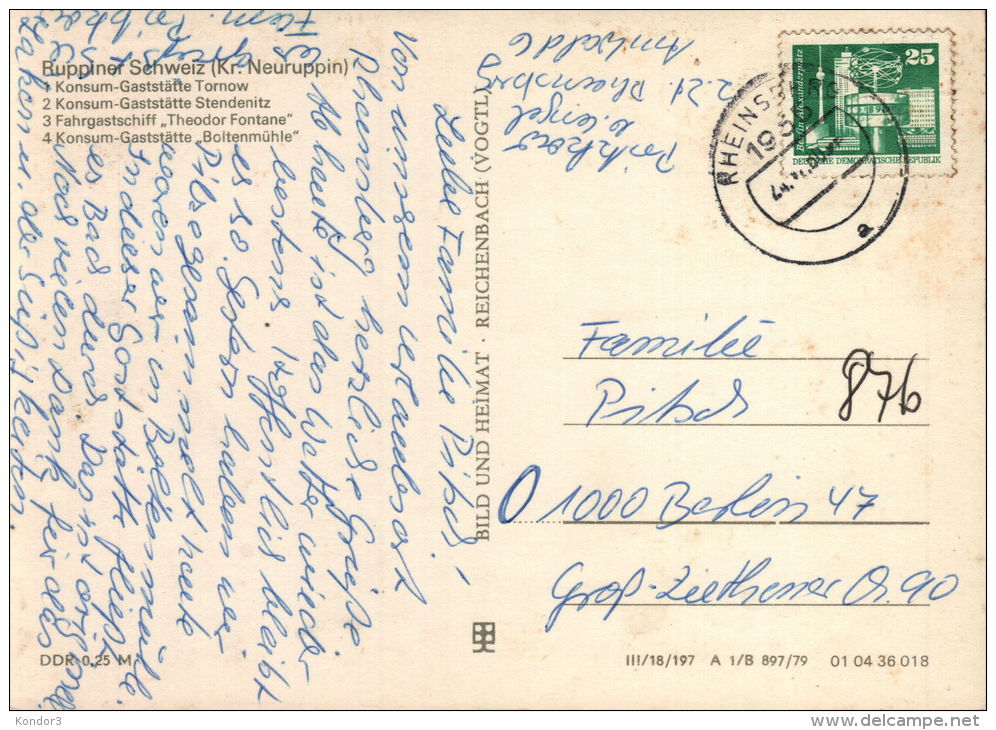 Ruppiner Schweiz (Kr. Neuruppin)
1 Konsum-Gaststätte Tornow
2 Konsum-Gaststätte Stendenitz
3 Fahrgastschiff „Theodor Fontane"
4 Konsum-Gaststätte „Boltenmühle"
Liebe Familie Pitsch,
Von unserem Urlaubsort
Rheinsberg herzliche Grüße
Ab heute ist das Wetter wieder
bestens hoffentlich bleibt
es so. Gestern haben wir
Pilze gesammelt heute
waren wir in Boltenmühle.
In dieser Gaststätte fließt
der Bach durch. Das ist
Noch vielen Dank für das
u. der Süßigkeiten.
Fam.
2.21 Rheinsberg
Am Walde 6
BILD UND HEIMAT · REICHENBACH (VOGTL)
25
Berlin, Alexanderplatz
DEUTSCHE DEMOKRATISCHE REPUBLIK
RHEINSBERG
195
24.
a
Familie
Pitsch
876
O 1000 Berlin 47
Groß-Ziethener Ch. 90
DDR 0,25 M
III/18/197 A 1/B 897/79 01 04 36 018
Kondor3
delcampe.net